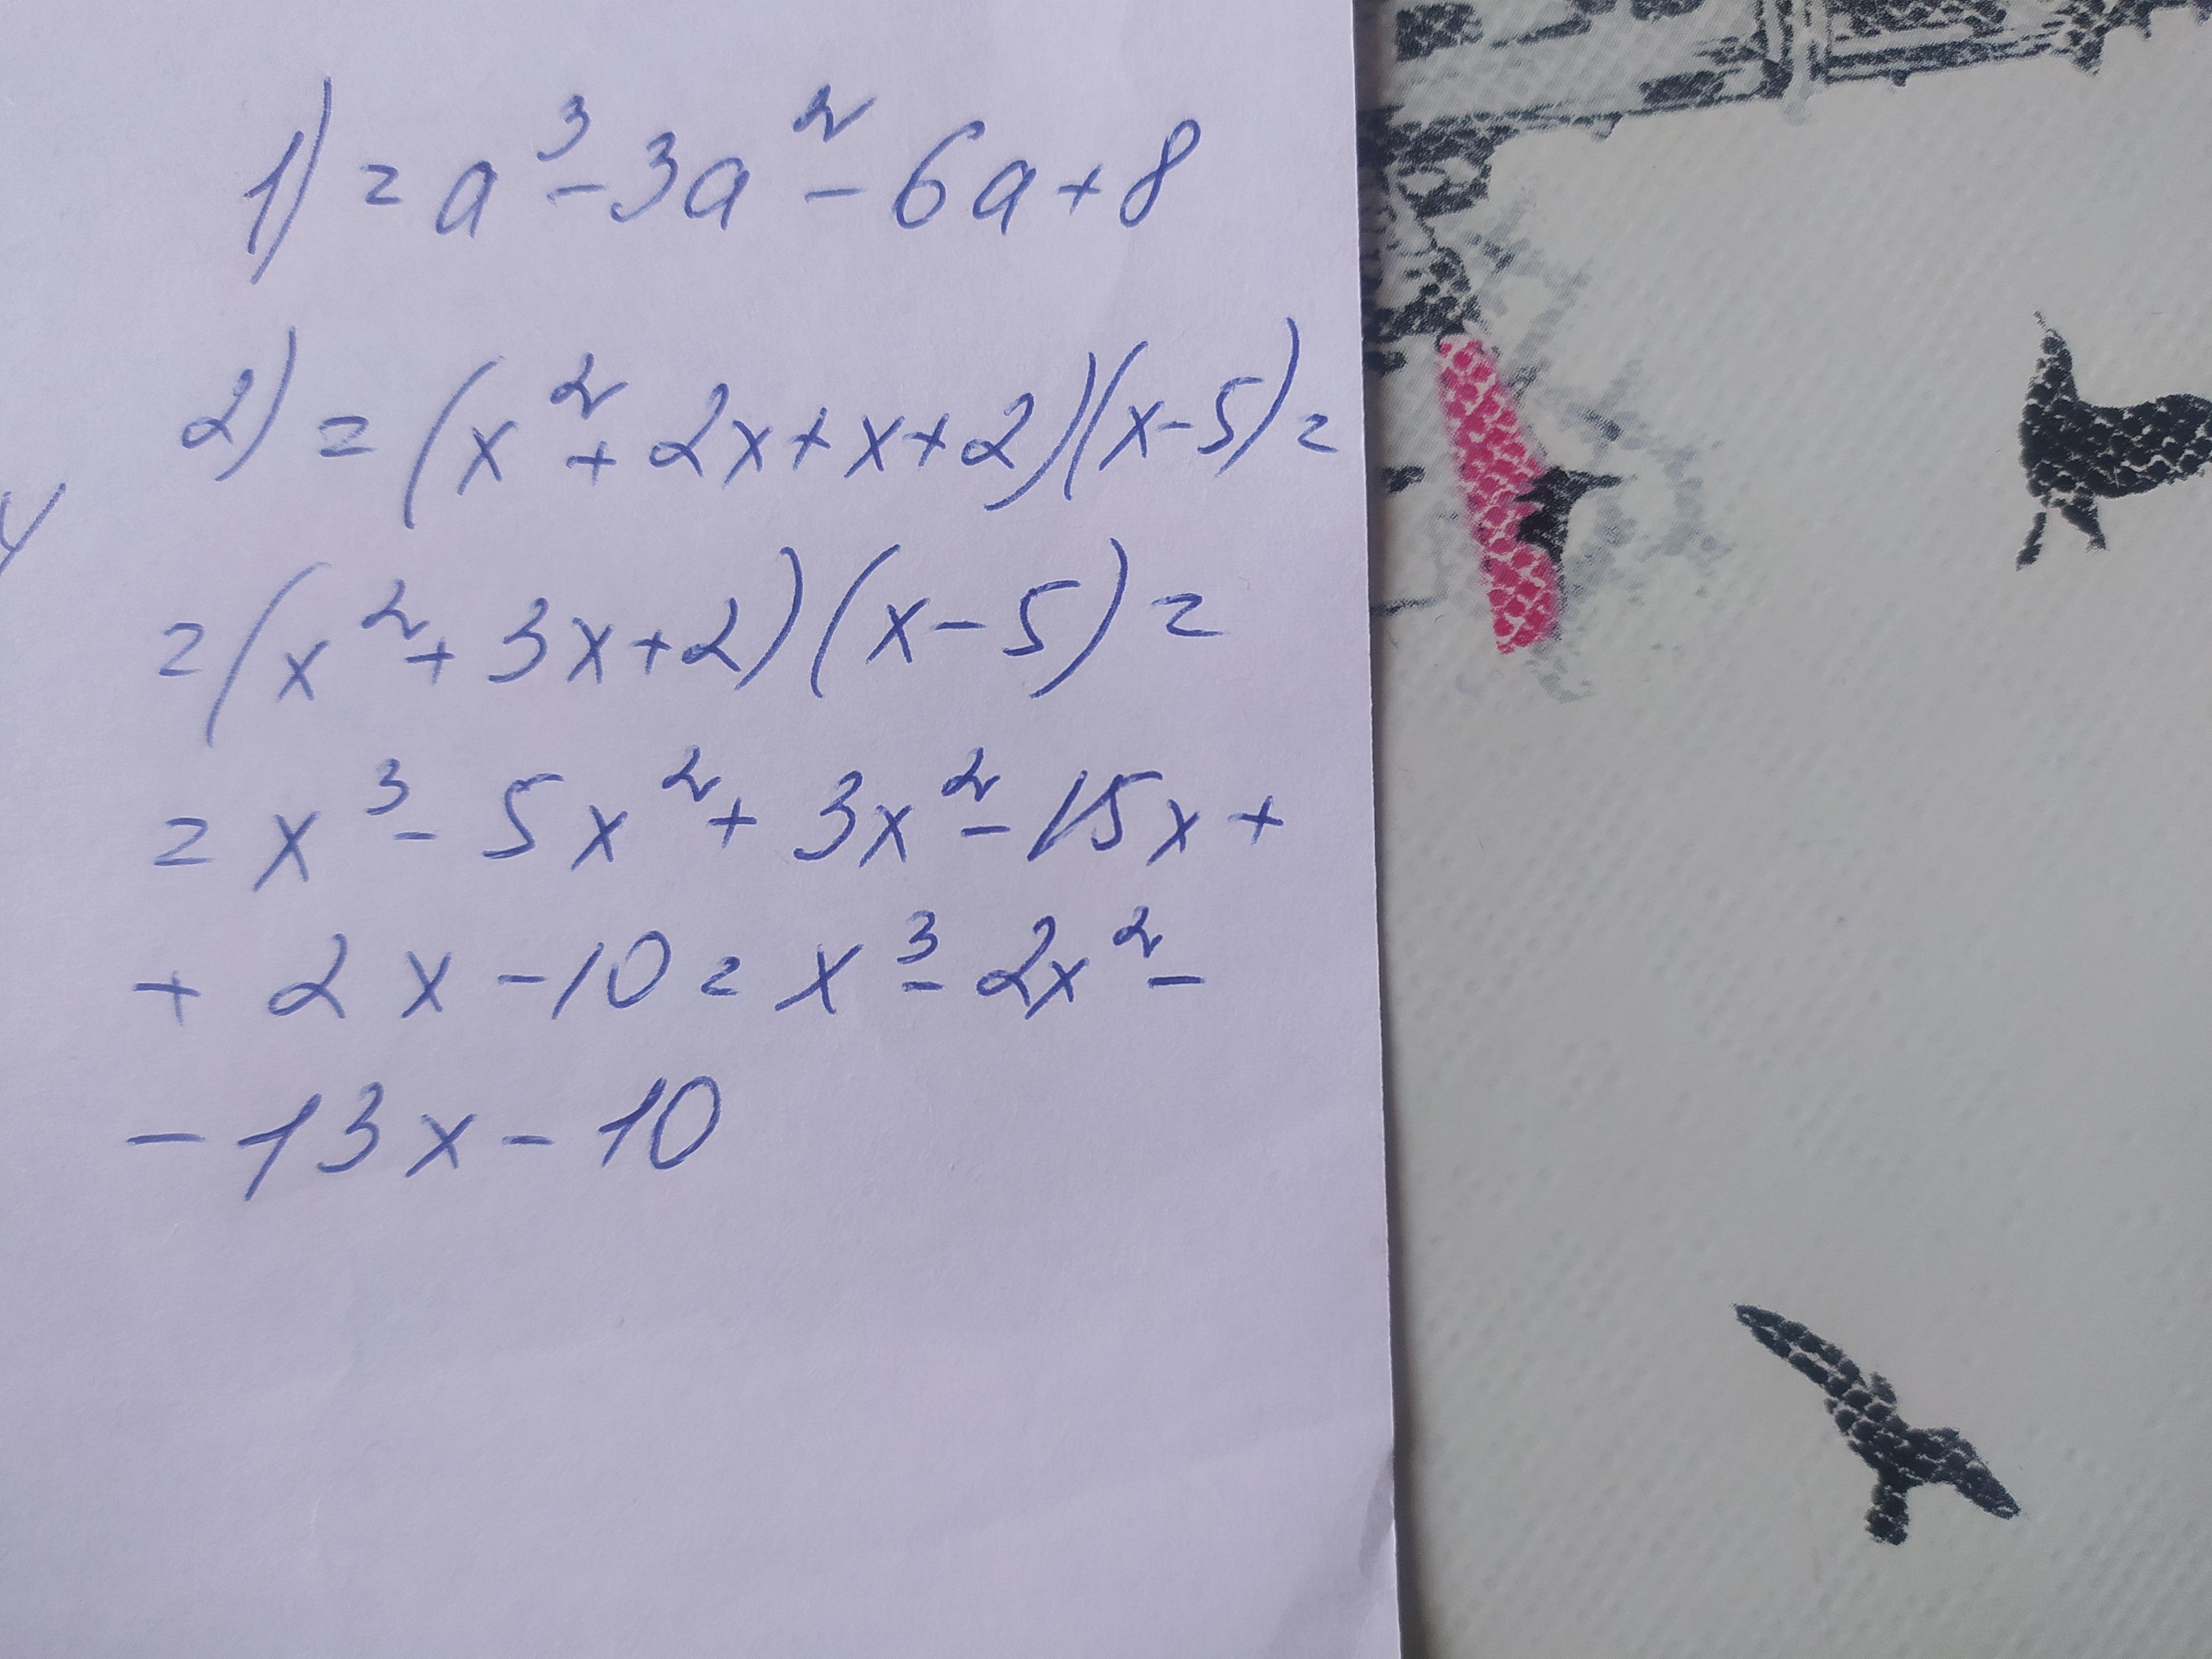 1) = a³ - 3a² - 6a + 8
2) = (x² + 2x + x + 2)(x - 5) =
= (x² + 3x + 2)(x - 5) =
= x³ - 5x² + 3x² - 15x +
+ 2x - 10 = x³ - 2x² -
- 13x - 10